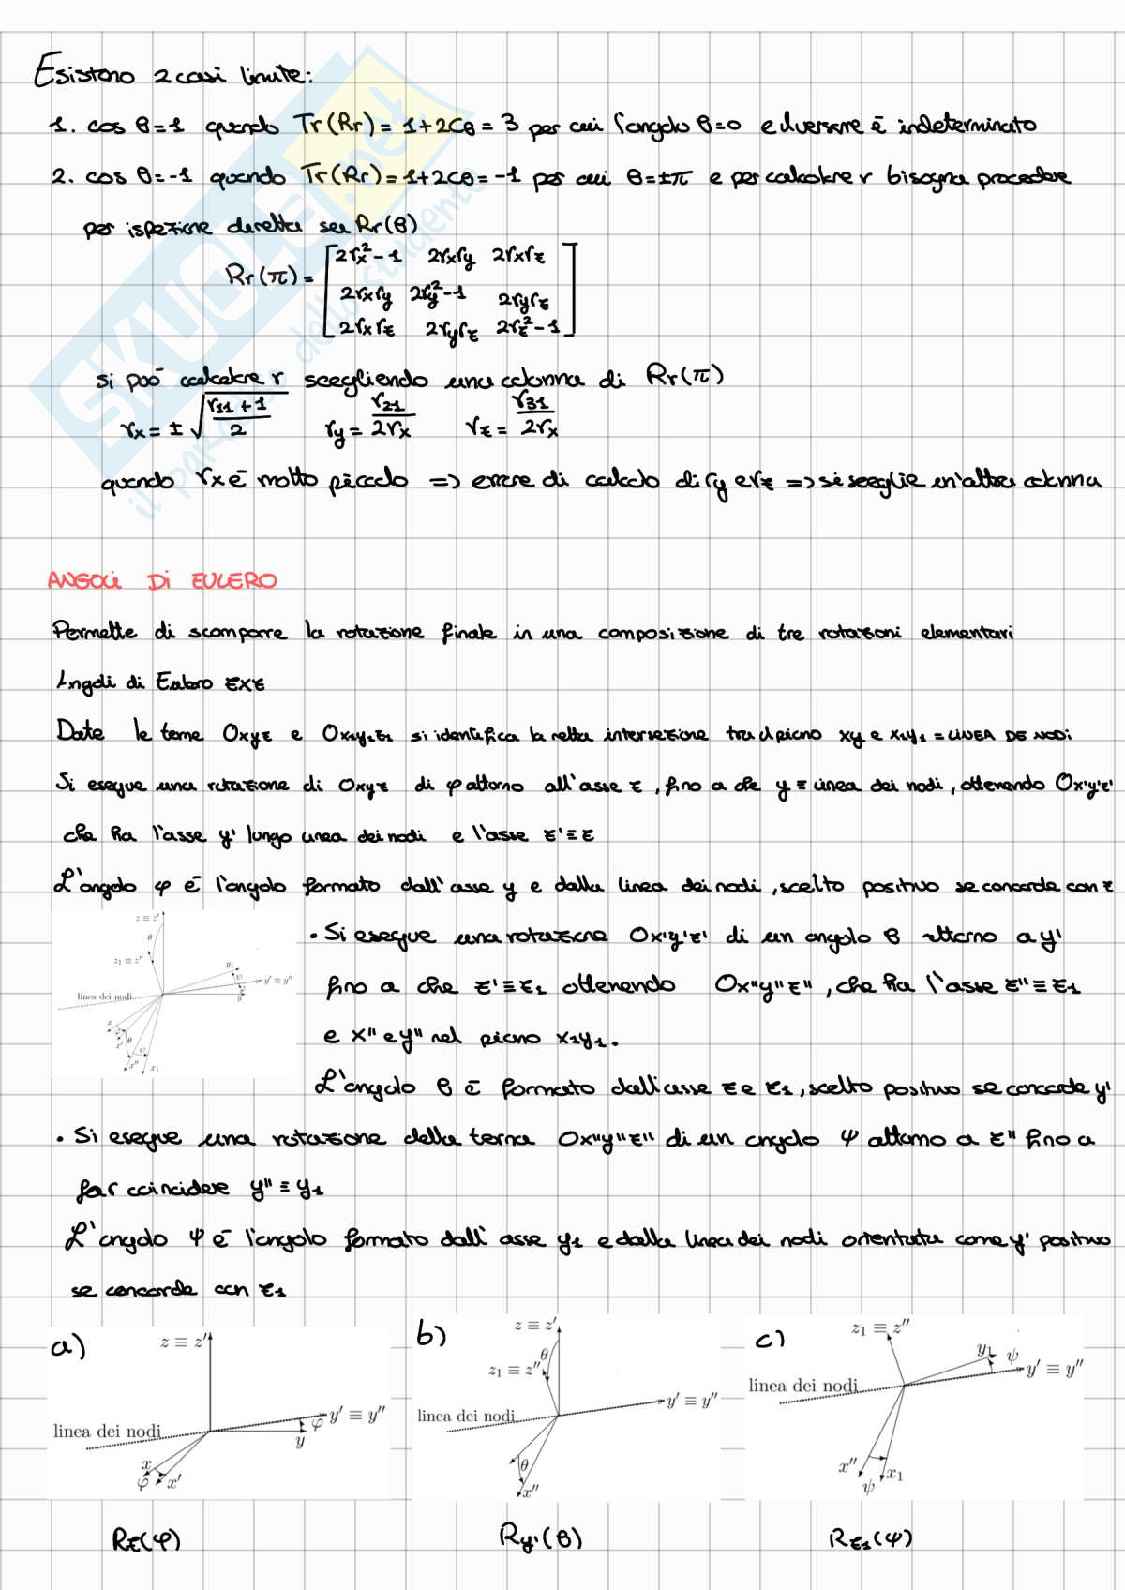 Esistono 2 casi limite:
1. cos θ=1 quando Tr(Rr)=1+2cθ=3 per cui l'angolo θ=0 e il versore è indeterminato
2. cos θ=-1 quando Tr(Rr)=1+2cθ=-1 per cui θ=±π e per calcolare r bisogna procedere
per ispezione diretta su Rr(θ)
Rr(π)= [2rx²-1 2rxry 2rxrz
2rxry 2ry²-1 2ryrz
2rxrz 2ryrz 2rz²-1]
si può calcolare r scegliendo una colonna di Rr(π)
rx=±√((r11+1)/2) ry=r21/2rx rz=r31/2rx
quando rx è molto piccolo => errore di calcolo di ry e rz => si sceglie un'altra colonna
ANGOLI DI EULERO
Permette di scomporre la rotazione finale in una composizione di tre rotazioni elementari
Angoli di Eulero ZYZ
Date le terne Oxyz e Ox1y1z1 si identifica la retta intersezione tra il piano xy e x1y1 = LINEA DEI NODI
Si esegue una rotazione di Oxyz di φ attorno all'asse z, fino a che y ≡ linea dei nodi, ottenendo Ox'y'z'
che ha l'asse y' lungo linea dei nodi e l'asse z'≡z
L'angolo φ è l'angolo formato dall'asse y e dalla linea dei nodi, scelto positivo se concorde con z
z ≡ z'
θ
z1 ≡ z''
y' ≡ y''
linea dei nodi
x''
x1
• Si esegue una rotazione Ox'y'z' di un angolo θ attorno a y'
fino a che z'≡z1 ottenendo Ox"y"z", che ha l'asse z"≡z1
e x" e y" nel piano x1y1.
L'angolo θ è formato dall'asse z e z1, scelto positivo se concorde y'
• Si esegue una rotazione della terna Ox"y"z" di un angolo ψ attorno a z" fino a
far coincidere y"≡y1
L'angolo ψ è l'angolo formato dall'asse y1 e dalla linea dei nodi orientata come y' positivo
se concorde con z1
a)
z ≡ z'
linea dei nodi
y' ≡ y''
φ
y
x
φ
x'
Rz(φ)
b)
z ≡ z'
θ
z1 ≡ z''
y' ≡ y''
linea dei nodi
θ
x''
Ry'(θ)
c)
z1 ≡ z''
y1
ψ
y' ≡ y''
linea dei nodi
x''
x1
ψ
Rz1(ψ)
SKUOLA.net